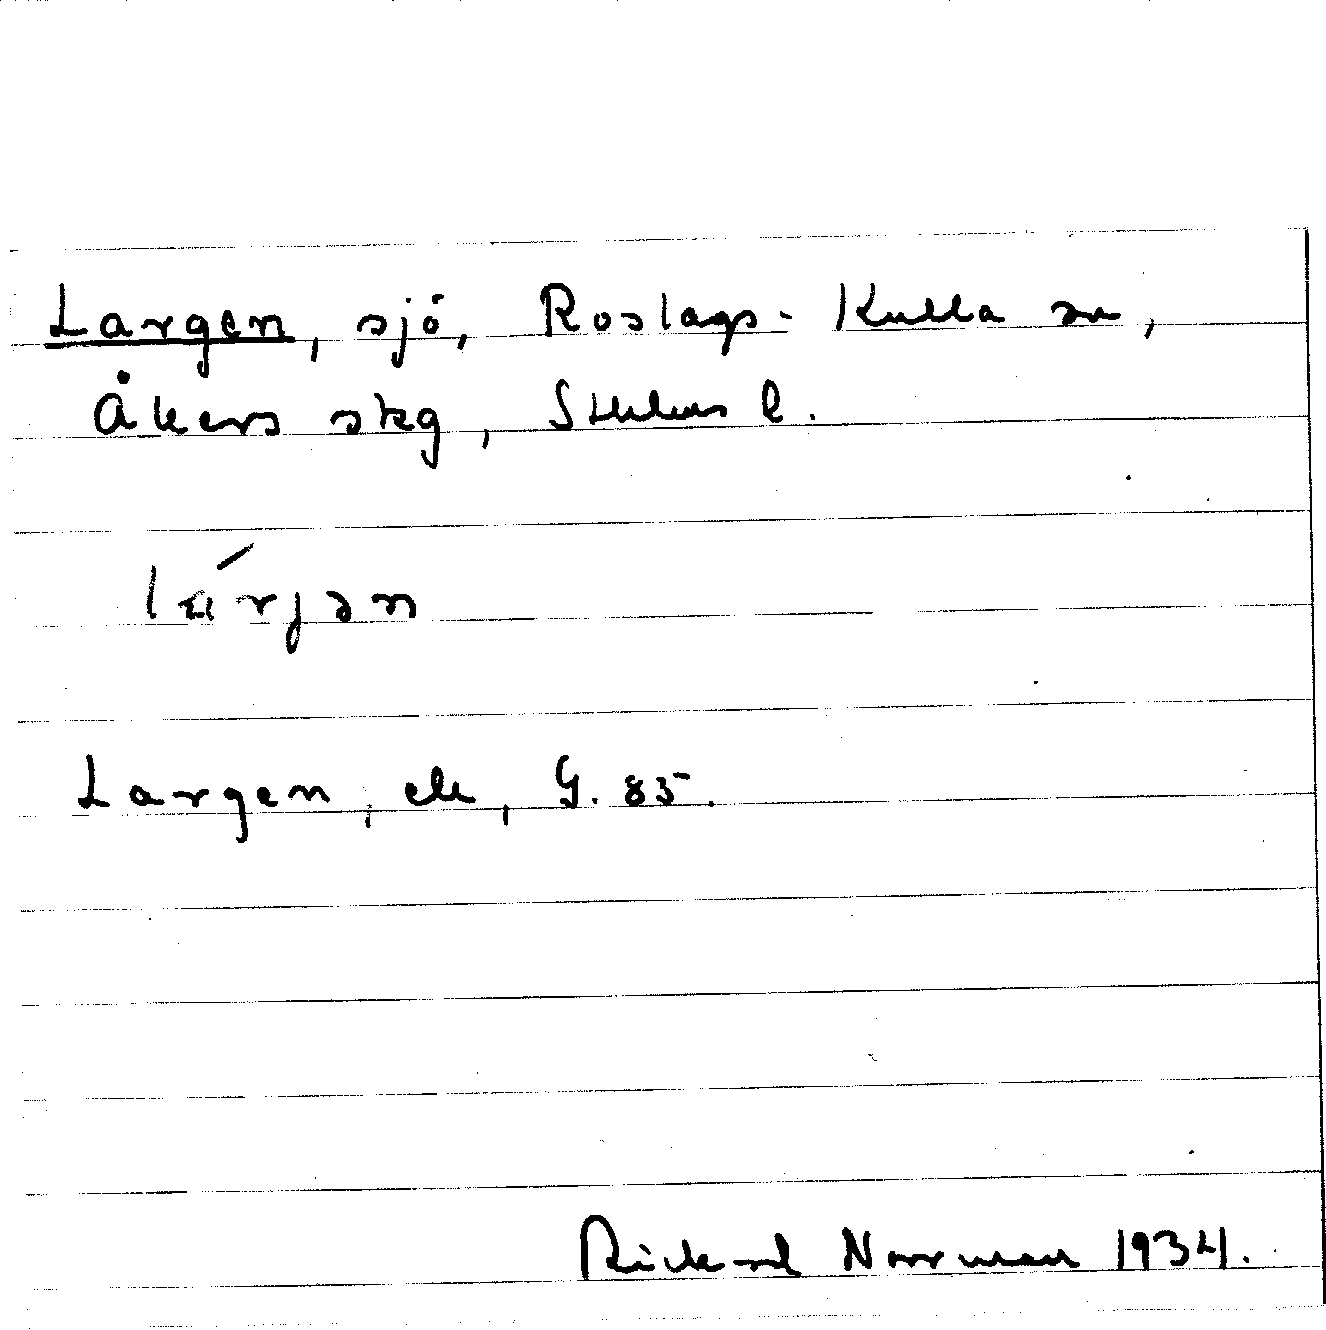 Largen, sjö, Roslags-Kulla sn,
Åkers skg, Sthlms l.
Largen, ek, G. 85.
Rickard Norrman 1934.